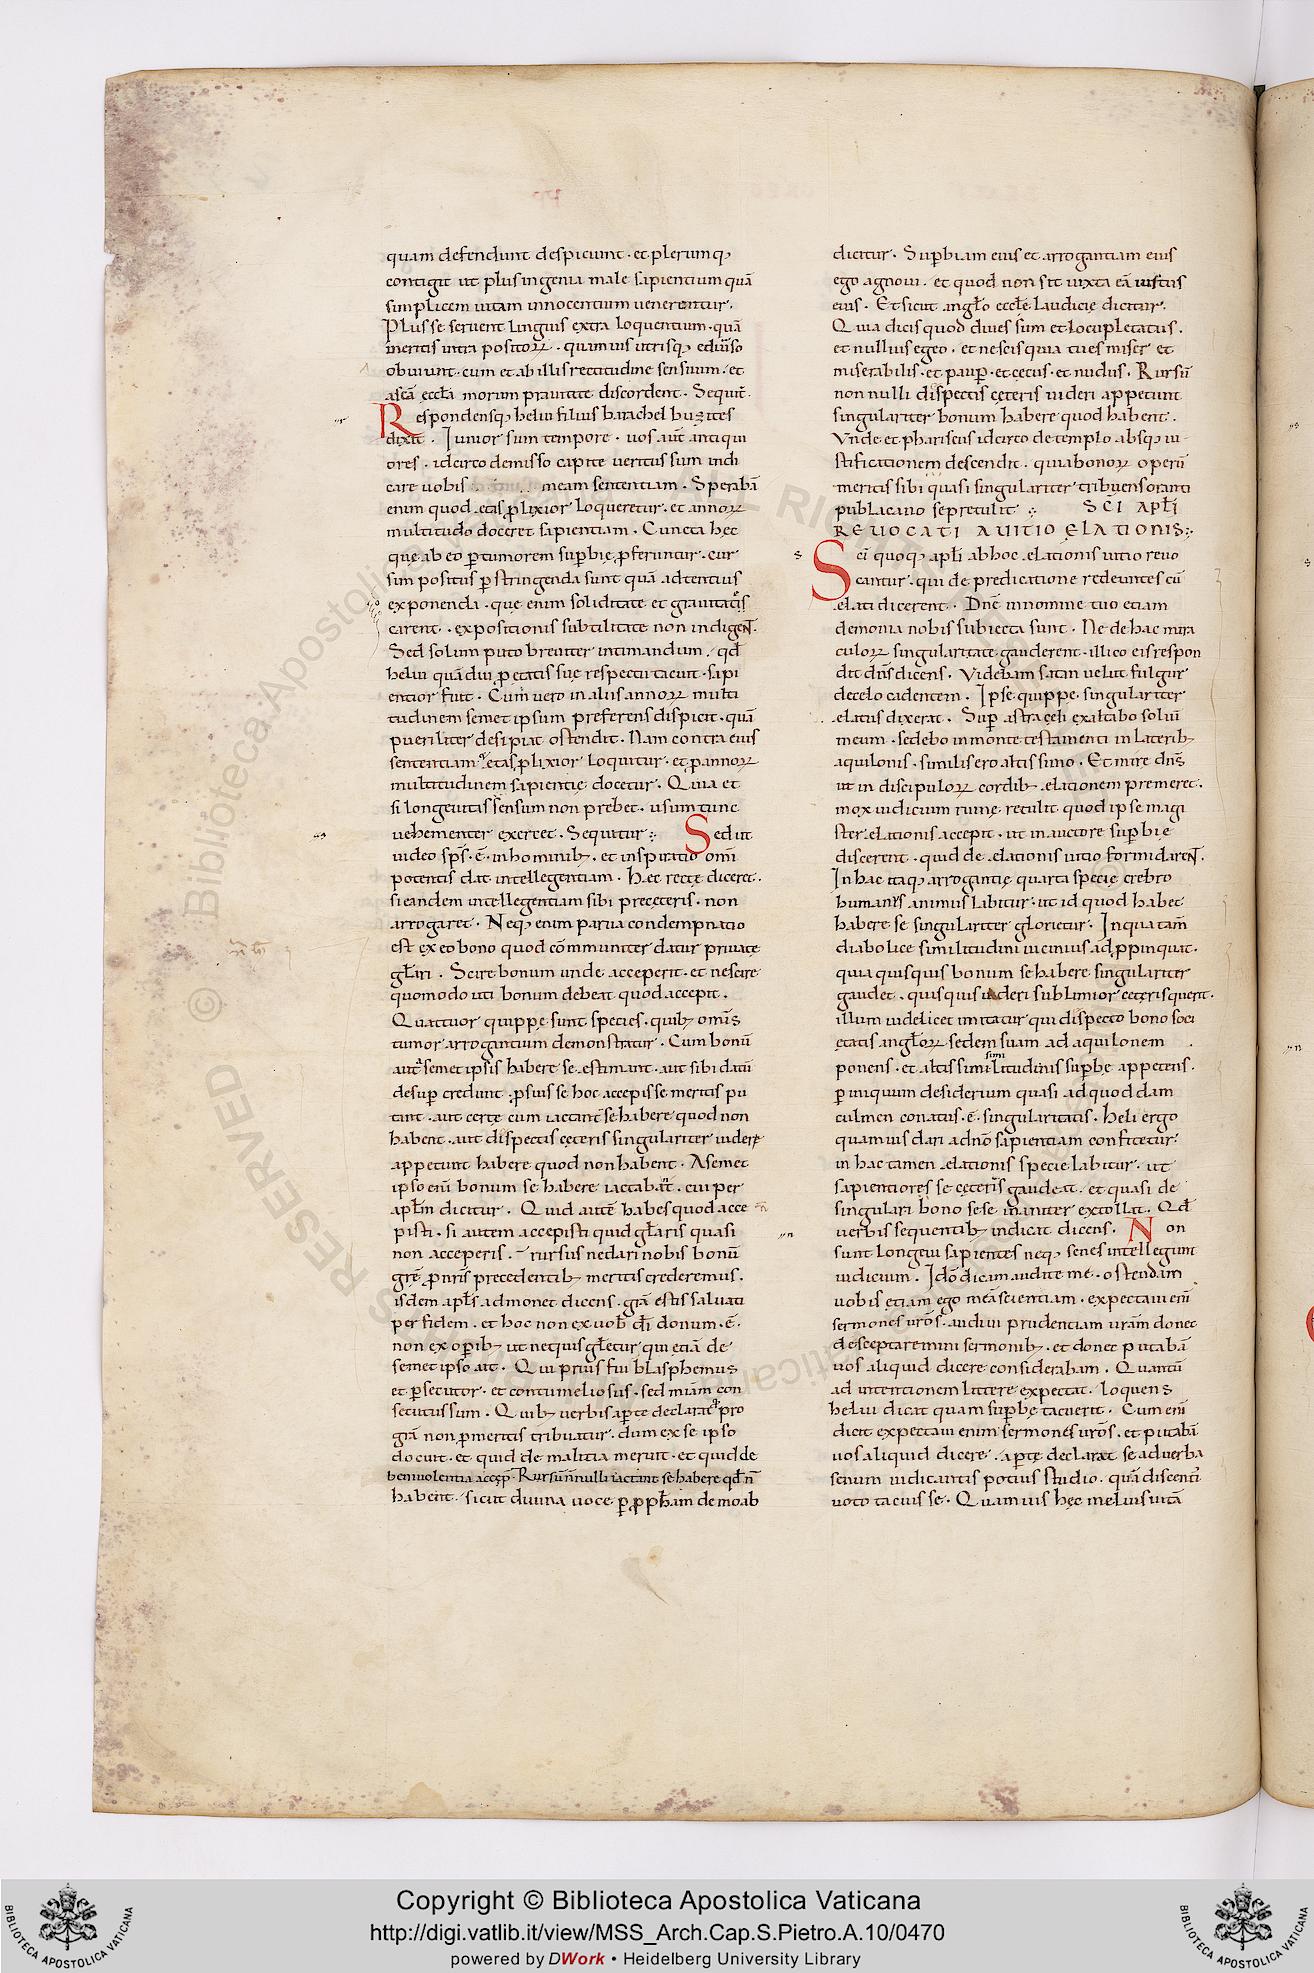 quam defendunt despiciunt · et plerumq;
contigit ut plus ingenia male sapientium quā
simplicem uitam innocentium uenerentur.
Plus se seruent linguis extra loquentium · quā
meritis intra positoꝝ · quamuis utrisq; ediūso
obuiunt · cum et ab illis rectitudine sensuum · et
a scā eccla morum prauitate discordent · Sequit̄.
Respondensq; heliu filius barachel buzites
dixit · Iunior sum tempore · uos aut̄ antiqui
ores · idcirco demisso capite ueritus sum indi
care uobis meam sententiam · Sperabā
enim quod ętas ꝓlixior loqueretur · et annoꝝ
multitudo doceret sapientiam · Cuncta hęc
quę ab eo ꝑ tumorem supbię ꝓferuntur · cur
sim positus ꝑstringenda sunt quā adtentius
exponenda · quę enim soliditate et grauitatis
carent · expositionis subtilitate non indigeN̄.
Sed solum puto breuiter intimandum · qđ
heliu quādiu ꝓ ętatis suę respectu tacuit · sapi
entior fuit · Cum uero in aliis annoꝝ multi
tudinem semet ipsum preferens dispicit · quā
pueriliter desipiat ostendit · Nam contra eius
sententiam ętas ꝓlixior loquitur · et ꝑ annoꝝ
multitudinem sapientię docetur · Quia et
si longeuitas sensum non prębet · usum tunc
uehementer exercet · Sequitur : Sed ut
uideo sps · ē · in hominib; · et inspiratio omī
potentis dat intellegentiam · Hęc rectę diceret ·
si eandem intellegentiam sibi pręceteris · non
arrogaret · Neq; enim parua condempnatio
est ex eo bono quod cōmmuniter datur priuatę
glari · Scire bonum unde acceperit · et nescire
quomodo uti bonum debeat quod accepit ·
Quattuor quippę sunt species · quib; omīs
tumor arrogantium demonstratur · Cum bonū
aut semet ipsis habere se estimant · aut sibi datū
desuꝑ credunt · ꝓ suis se hoc accepisse meritis pu
tant · aut certę cum iactant se habere quod non
habent · aut dispectis cęteris singulariter uidere
appetunt habere quod non habent · A semet
ipso enī bonum se habere iactabat · cui per
aplm dicitur · Quid autē habes quod acce
pisti · si autem accepisti quid glaris quasi
non acceperis · rursus ne dari nobis bonū
grē ꝓ nrīs precedentib; meritis crederemus ·
isdem apls admonet dicens · grā estis saluati
per fidem · et hoc non ex uob dī donum · ē ·
non ex oꝑib; ut ne quis gletur qui etiā de
semet ipso ait · Qui prius fui blasphemus
et ꝑsecutor · et contumeliosus · sed miam con
secutus sum · Quib; uerbis aꝑte declarat pro
grā non ꝓ meritis tribuatur · dum ex se ipso
docuit · et quid de malitia meruit · et quid de
beniuolentia accep̄ · Rursū nnulli iactant se habere qđ n̄
habent · sicut diuina uoce ꝑ ꝓpham de moab
dicitur · Supbiam eius et arrogantiam eius
ego agnoui · et quod non sit iuxta eā uirtus
eius · Et sicut anglo eccle laudicię dicitur ·
Quia dicis quod diues sum et locupletatus ·
et nullius egeo · et nescis quia tu es miser et
miserabilis · et pauꝑ · et cęcus · et nudus · Rursū
non nulli dispectis cęteris uideri appetunt
singulariter bonum habere quod habent ·
Unde et phariseus idcirco de templo absq; iu
stificationem descendit · quia bonoꝝ operū
meritis sibi quasi singulariter tribuens oranti
publicano se pretulit : SCI APLI
REUOCATI A UITIO ELATIONIS :
Sci quoq; apli ab hoc elationis uitio reuo
cantur · qui de predicatione redeuntes cū
elati dicerent · Dnē in nomine tuo etiam
demonia nobis subiecta sunt · Ne de hac mira
culoꝝ singularitate gauderent · illico eis respon
dit dns dicens · Videbam satan uelut fulgur
de celo cadentem · Ipse quippe singulariter
elatus dixerat · Suꝑ astra celi exaltabo soliū
meum · sedebo in monte testamenti in laterib;
aquilonis · similis ero altissimo · Et mire dns
ut in discipuloꝝ cordib; elationem premeret ·
mox iudicium ruinę retulit quod ipse magi
ster elationis accepit · ut in auctore supbię
discerent · quid de elationis uitio formidareN̄.
In hac itaq; arrogantię quarta specię crebro
humanus animus labitur · ut id quod habet
habere se singulariter glorietur · In qua tam
diabolice similitudini uicinius adꝓpinquat ·
quia quisquis bonum se habere singulariter
gaudet · quisquis uideri sublimior ceteris querit ·
illum uidelicet imitatur qui dispecto bono soci
ętatis angloꝝ sedem suam ad aquilonem
ponens · et altissimi similitudinis supbe appetens ·
ꝑ iniquum desiderium quasi ad quoddam
culmen conatus · ē · singularitatis · Heli ergo
quamuis dari ad nō sapientiam confitetur ·
in hac tamen elationis specie labitur · ut
sapientiores se cęteris gaudeat · et quasi de
singulari bono sese inaniter extollat · Qđ
uerbis sequentib; indicat dicens · Non
sunt longeui sapientes neq; senes intellegunt
iudicium · Ido dicam audite me · ostendam
uobis etiam ego meā scientiam · expectaui enī
sermones urōs · audiui prudentiam uram donec
desceptaremini sermonib; · et donec putabā
uos aliquid dicere considerabam · Quantū
ad intentionem littere expectat · loquens
heliu dicat quam supbę tacuerit · Cum enī
dicit expectaui enim sermones urōs · et putabā
uos aliquid dicere · aꝑtę declarat se ad uerba
senum iudicantis potius studio · quā discenti
uoto tacuisse · Quamuis hęc melius uitā
Copyright © Biblioteca Apostolica Vaticana
http://digi.vatlib.it/view/MSS_Arch.Cap.S.Pietro.A.10/0470
powered by DWork • Heidelberg University Library
BIBLIOTECA APOSTOLICA VATICANA
BIBLIOTECA APOSTOLICA VATICANA